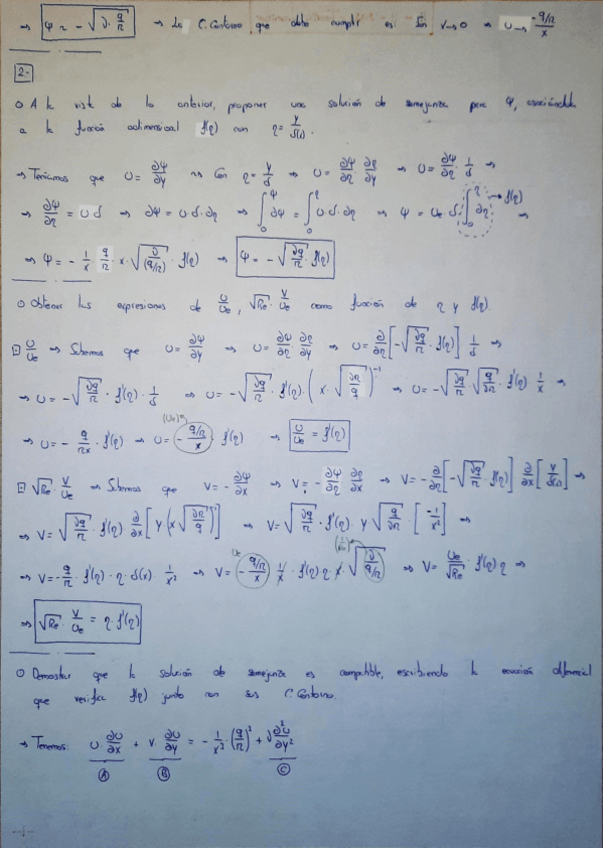 ⇒ Ψ ~ - √(ν · q/π) → La C. Contorno que debe cumplir es: Em y→0 ⇒ U → -(q/π)/x
2.-
○ A la vista de lo anterior, proponer una solución de semejanza para Ψ, asociándola
a la función adimensional f(η) con η = y/δ(x).
→ Teníamos que U = ∂Ψ/∂y ⇒ Con η = y/δ ⇒ U = ∂Ψ/∂η · ∂η/∂y ⇒ U = ∂Ψ/∂η · 1/δ ⇒
⇒ ∂Ψ/∂η = U δ ⇒ ∂Ψ = U · δ · ∂η ⇒ ∫₀^Ψ ∂Ψ = ∫₀^η U · δ · ∂η ⇒ Ψ = Ue · δ · ∫₀^η ∂η → f(η) ⇒
⇒ Ψ = - 1/x · q/π · x · √(ν/(q/π)) · f(η) ⇒ Ψ = - √(νq/π) · f(η)
○ Obtener las expresiones de U/Ue, √Re · V/Ue como función de η y f(η).
⊡ U/Ue → Sabemos que U = ∂Ψ/∂y ⇒ U = ∂Ψ/∂η · ∂η/∂y ⇒ U = ∂/∂η [-√(νq/π) · f(η)] · 1/δ ⇒
⇒ U = -√(νq/π) · f'(η) · 1/δ ⇒ U = -√(νq/π) · f'(η) · (x · √(νπ/q))⁻¹ ⇒ U = -√(νq/π) · √(q/νπ) · f'(η) · 1/x ⇒
⇒ U = - q/πx · f'(η) → U = (-(q/π)/x) (Ue) · f'(η) ⇒ U/Ue = f'(η)
⊡ √Re · V/Ue → Sabemos que V = - ∂Ψ/∂x ⇒ V = - ∂Ψ/∂η · ∂η/∂x ⇒ V = - ∂/∂η [-√(νq/π) · f(η)] · ∂/∂x [y/δ(x)] ⇒
⇒ V = √(νq/π) · f'(η) · ∂/∂x [y (x√(νπ/q))⁻¹] ⇒ V = √(νq/π) · f'(η) · y √(q/νπ) · [-1/x²] ⇒
⇒ V = - q/π · f'(η) · η · δ(x) · 1/x² ⇒ V = (-(q/π)/x) Ue · 1/x · f'(η) · η · x · √(ν/(q/π)) (1/√Re) ⇒ V = Ue/√Re · f'(η) η ⇒
⇒ √Re · V/Ue = η · f'(η)
○ Demostrar que la solución de semejanza es compatible, escribiendo la ecuación diferencial
que verifica f(η) junto con sus C. Contorno.
→ Tenemos: U · ∂U/∂x + V · ∂U/∂y = - 1/x³ · (q/π)² + ν ∂²U/∂y²
Ⓐ Ⓑ Ⓒ